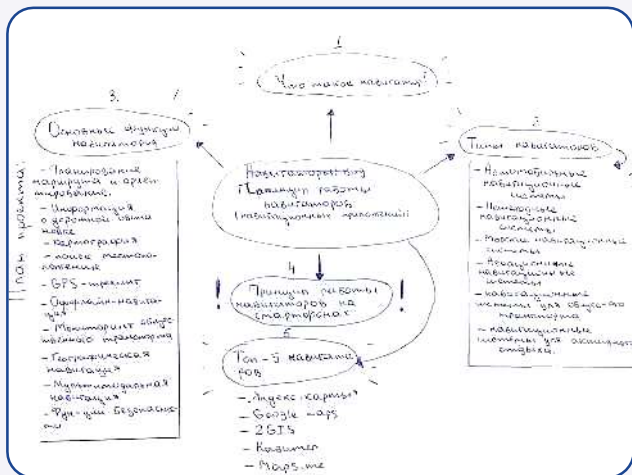 План проекта:
1.
Что такое навигатор?
3.
Основные функции
навигатора
- Планирование
маршрута и ориен
тирование.
- Информация
о дорожной обста
новке
- Картография
- поиск местопо-
ложения
- GPS-трекинг
- Оффлайн-навига-
ция
- Мониторинг общес
твенного транспорта
- Географическая
навигация
- Мультимодальная
навигация
- Фун-ции безопаснос-
ти
Навигаторы: вид
Принцип работы
навигаторов
(навигационных приложений)
2
Типы навигаторов
- Автомобильные
навигационные
системы
- Пешеходные
навигационные
системы
- Морские навигационные
системы
- Авиационные
навигационные
системы
- навигационные
системы для обществ-го
транспорта
- навигационные
системы для активного
отдыха.
4
! Принцип работы !
навигаторов на
смартфонах
5
Топ-5 навигато
ров
- Яндекс.карты
- Google maps
- 2GIS
- Навител
- Maps.me